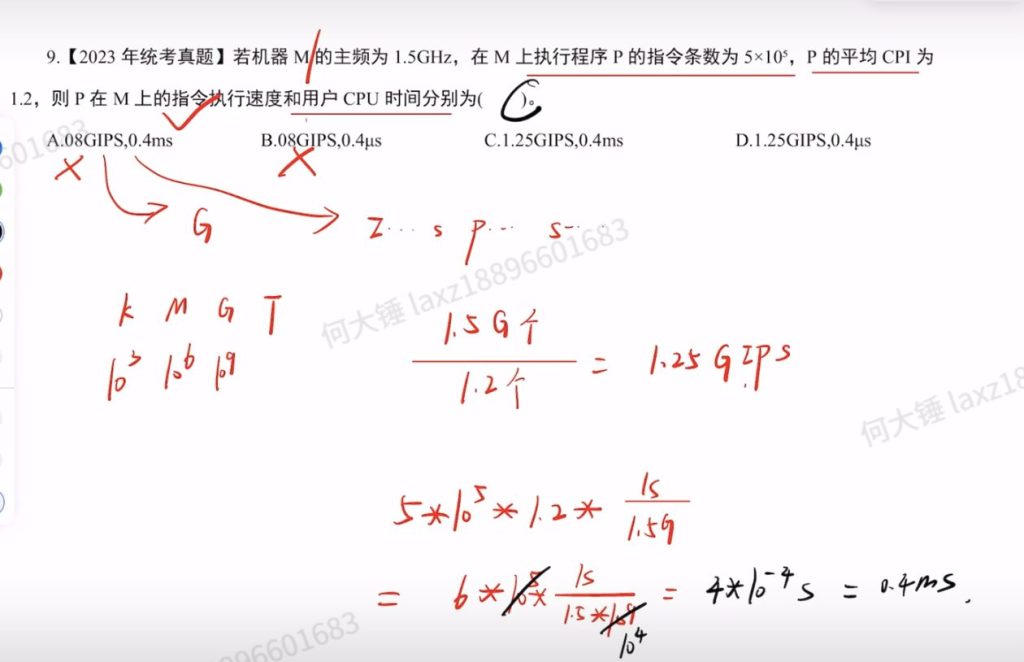 9.【2023 年统考真题】若机器 M 的主频为 1.5GHz，在 M 上执行程序 P 的指令条数为 5×10⁵，P 的平均 CPI 为
1.2，则 P 在 M 上的指令执行速度和用户 CPU 时间分别为( )。
A.08GIPS,0.4ms B.08GIPS,0.4μs C.1.25GIPS,0.4ms D.1.25GIPS,0.4μs
G I... s p... s...
K M G T
10³ 10⁶ 10⁹
1.5G个 / 1.2个 = 1.25 GIPS
5*10⁵*1.2* 1s / 1.5G
= 6*10⁵* 1s / 1.5*10⁹ 10⁴ = 4*10⁻⁴s = 0.4ms.
何大锤 laxz18896601683
何大锤 laxz18
601683
896601683